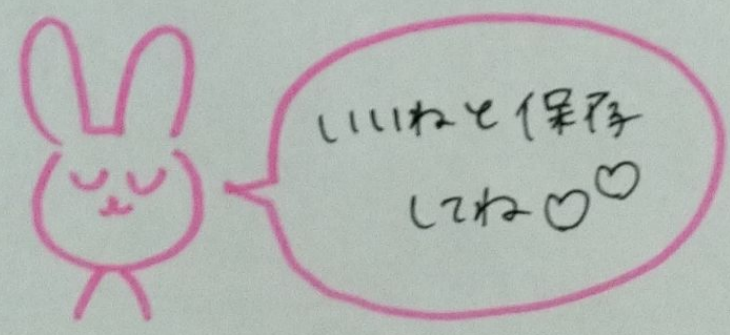 いいねと保存
してね♡♡